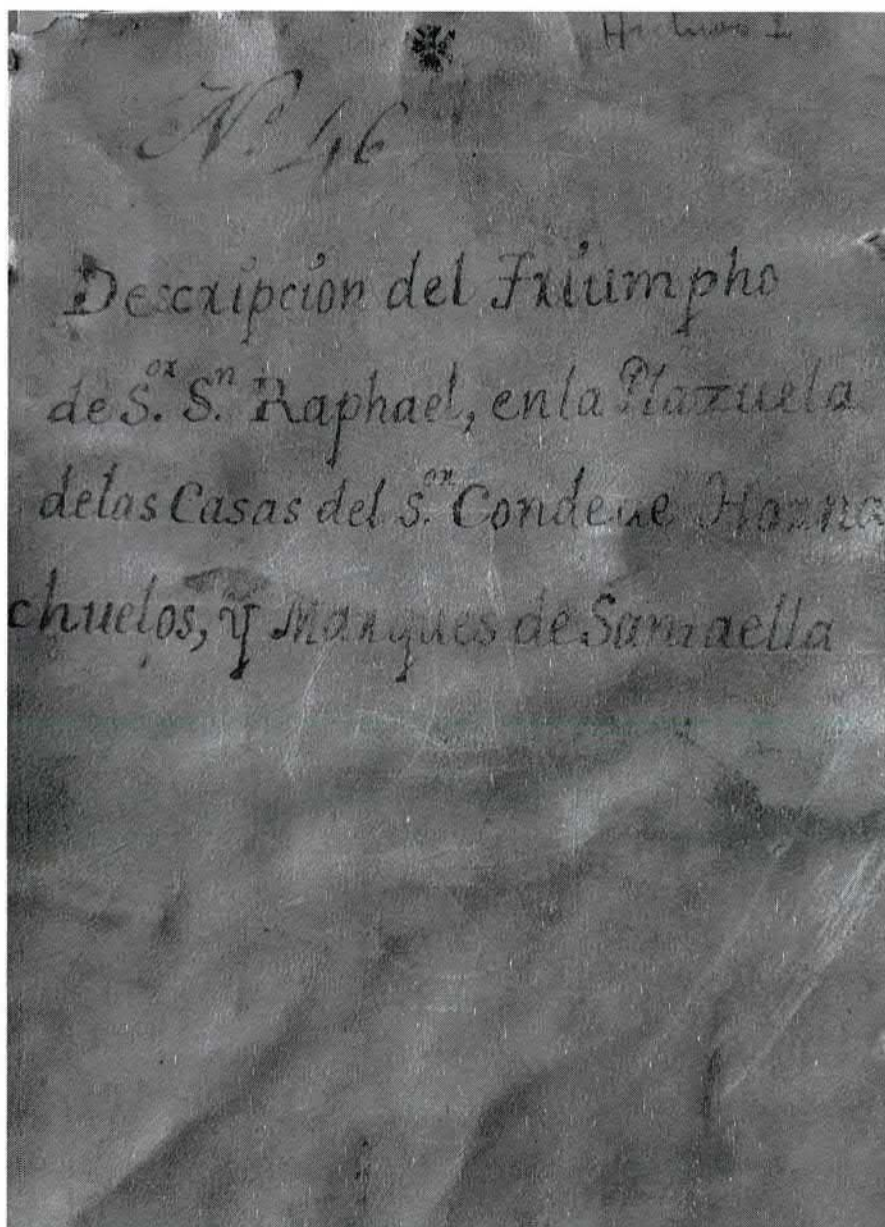 N.º 46
Descripcion del Triumpho
de S.ᵒʳ S.ⁿ Raphael, en la Plazuela
delas Casas del S.ᵒʳ Conde de Horna
chuelos, Y Marques de Santaella